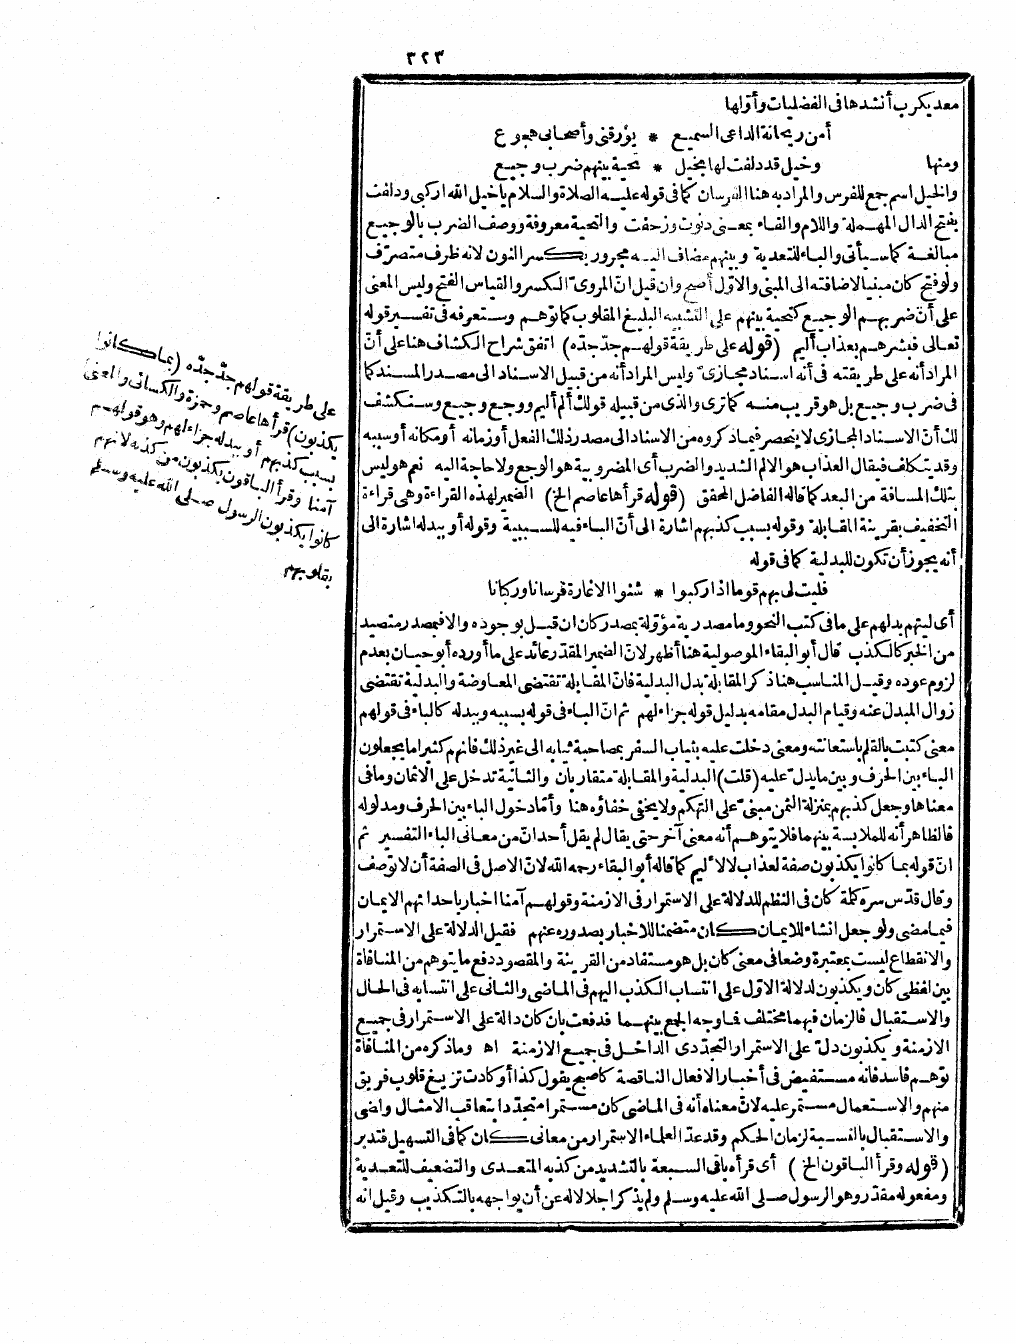 ٣٢٣
معديكرب أنشدها فى الفضليات وأولها
أمن ريحانة الداعى السميع * يؤرقنى وأصحابى هجوع
ومنها وخيل قد دلفت لها بخيل * تحية بينهم ضرب وجيع
والخيل اسم جمع للفرس والمراد به هنا الفرسان كما فى قوله عليه الصلاة والسلام ياخيل الله اركبى ودلفت
بفتح الدال المهملة واللام والفاء بمعنى دنوت وزحفت والتحية معروفة ووصف الضرب بالوجيع
مبالغة كما سيأتى والباء للتعدية وبينهم مضاف اليه مجرور بكسر النون لانه ظرف متصرّف
ولو فتح كان مبنيا لاضافته الى المبنى والاوّل أصح وان قيل انّ المروىّ الكسر والقياس الفتح وليس المعنى
على أن ضربهم الوجيع كتحية بينهم على التشبيه البليغ المقلوب كما توهم وستعرفه فى تفسير قوله
تعالى فبشرهم بعذاب أليم (قوله على طريقة قولهم جدّ جدّه) اتفق شراح الكشاف هنا على أنّ
المراد أنه على طريقته فى أنه اسناد مجازىّ وليس المراد أنه من قبيل الاسناد الى مصدر المسند كما
فى ضرب وجيع بل هو قريب منه كما ترى والذى من قبيله قولك ألم أليم ووجع وجيع وستكشف
لك أنّ الاسناد المجازى لا ينحصر فيما ذكروه من الاسناد الى مصدر ذلك الفعل أو زمانه أو مكانه أو سببه
وقد يتكلف فيقال العذاب هو الالم الشديد والضرب أى المضروبية هو الوجع ولا حاجة اليه نعم هو ليس
بتلك المسافة من البعد كما قاله الفاضل المحقق (قوله قرأها عاصم الخ) الضمير لهذه القراءة وهى قراءة
التخفيف بقرينة المقابلة وقوله بسبب كذبهم اشارة الى أنّ الباء فيه للسببية وقوله أو ببدله اشارة الى
أنه يجوز أن تكون للبدلية كما فى قوله
فليت لى بهم قوما اذا ركبوا * شنوا الاغارة فرسانا وركبانا
أى ليتهم بدلهم على ما فى كتب النحو وما مصدرية مؤوّلة بمصدر كان ان قيل بوجوده والا فبمصدر متصيد
من الخبر كالكذب قال أبو البقاء الموصولية هنا أظهر لانّ الضمير المقدّر عائد على ما أورده أبو حيان بعدم
لزوم عوده وقيل المناسب هنا ذكر المقابلة بدل البدلية فانّ المقابلة تقتضى المعاوضة والبدلية تقتضى
زوال المبدل عنه وقيام البدل مقامه بدليل قوله جزاء لهم ثم انّ الباء فى قوله بسببه وببدله كالباء فى قولهم
معنى كتبت بالقلم باستعانته ومعنى دخلت عليه بثياب السفر بمصاحبة ثيابه الى غير ذلك فانهم كثيرا ما يجعلون
الباء بين الحرف وبين ما يدل عليه (قلت) البدلية والمقابلة متقاربان والثانية تدخل على الاثمان وما فى
معناها وجعل كذبهم بمنزلة الثمن مبنىّ على التهكم ولا يخفى خفاؤه هنا وأمّا دخول الباء بين الحرف ومدلوله
فالظاهر أنه للملابسة بينهما فلا يتوهم أنه معنى آخر حتى يقال لم يقل أحد انّ من معانى الباء التفسير ثم
انّ قوله بما كانوا يكذبون صفة لعذاب لا لأليم كما قاله أبو البقاء رحمه الله لانّ الاصل فى الصفة أن لا توصف
وقال قدّس سرّه كلمة كان فى النظم للدلالة على الاستمرار فى الازمنة وقولهم آمنا اخبار باحداثهم الايمان
فيما مضى ولو جعل انشاء للايمان كان متضمنا للاخبار بصدوره عنهم فقيل الدلالة على الاستمرار
والانقطاع ليست بمعتبرة وضعا فى معنى كان بل هو مستفاد من القرينة والمقصود دفع ما يتوهم من المنافاة
بين لفظى كان ويكذبون لدلالة الاوّل على انتساب الكذب اليهم فى الماضى والثانى على انتسابه فى الحال
والاستقبال فالزمان فيهما مختلف فما وجه الجمع بينهما فدفعت بان كان دالة على الاستمرار فى جميع
الازمنة ويكذبون دلّ على الاستمرار التجدّدى الداخل فى جميع الازمنة اه وما ذكره من المنافاة
توهم فاسد فانه مستفيض فى أخبار الافعال الناقصة كاصبح يقول كذا أو كادت تزيغ قلوب فريق
منهم والاستعمال مستمر عليه لانّ معناه أنه فى الماضى كان مستمرا متجدّدا بتعاقب الامثال والمضى
والاستقبال بالنسبة لزمان الحكم وقد عدّ العلماء الاستمرار من معانى كان كما فى التسهيل فتدبر
(قوله وقرأ الباقون الخ) أى قرأه باقى السبعة بالتشديد من كذبه المتعدى والتضعيف للتعدية
ومفعوله مقدّر وهو الرسول صلى الله عليه وسلم ولم يذكر اجلالا له عن أن يواجهه بالتكذيب وقيل انه
على طريقة قولهم جدّ جدّه (بما كانوا
يكذبون) قرأها عاصم وحمزة والكسائى والمعنى
بسبب كذبهم أو ببدله جزاء لهم وهو قولهم
آمنا وقرأ الباقون يكذبون من كذبه لانهم
كانوا يكذبون الرسول صلى الله عليه وسلم
بقلوبهم